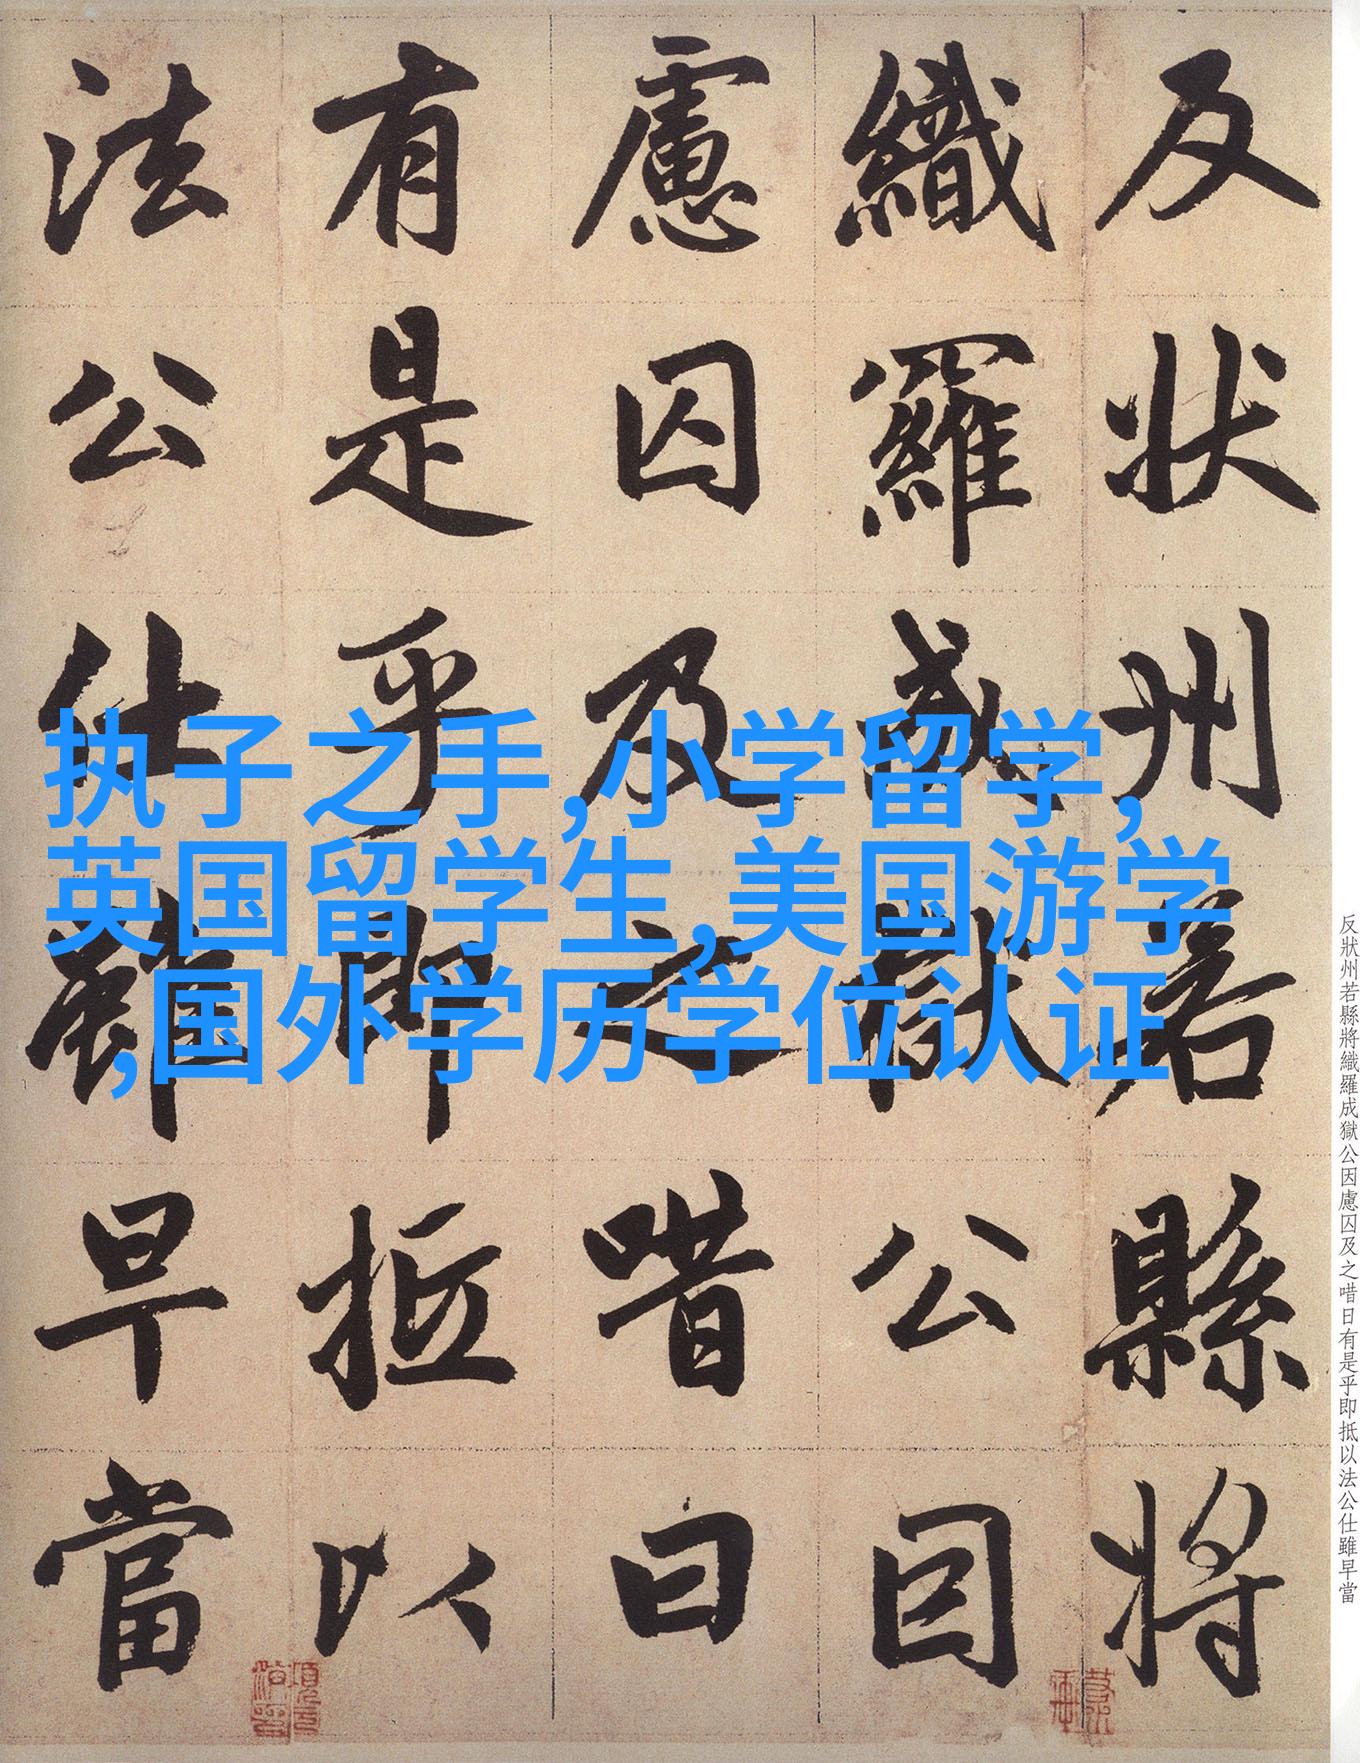 反状州若縣將
織羅成獄公因
慮囚及之唶曰
有是乎即抵以
法公仕雖早當
执子之手,小学留学,
英国留学生,美国游学
,国外学历学位认证
反狀州若縣將織羅成獄公因慮囚及之唶日有是乎即抵以法公仕雖早當